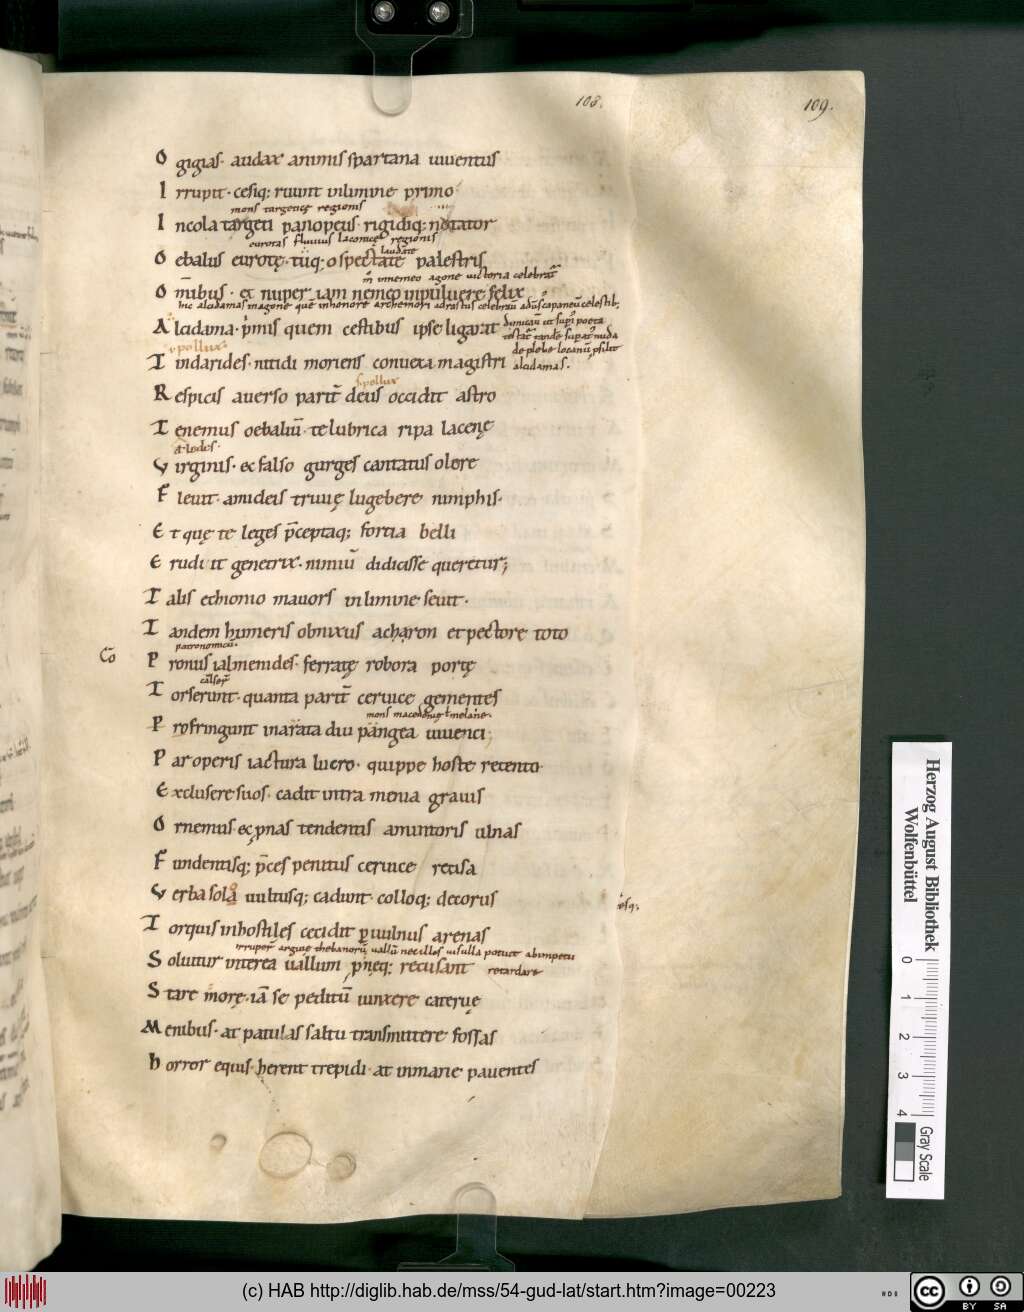 108.
109.
O gigias· audax animis spartana iuuentus
I rrupit· cesiq; ruunt inlimine primo
mons targetię regionis
I ncola targeti panopeus· rigidiq; natator
eurotas fluuius laconicę regionis
O ebalus eurotę· tuq; o spectate palestris
laudate
O mnibus· et nuper iam nemeo inpuluere felix
hic alcidamas inagone que inhonore archemori adrastus celebrauit
A lcidama· p̄mis quem cestibus ipse ligarat
.i. pollux
T indarides· nitidi moriens conuexa magistri
alcidamas·
R espicis auerso parit̄ deus occidit astro
.s. pollux
T enemus oebaliū· te lubrica ripa lacenę
a ledes·
V irginis· et falso gurges cantatus olore
F leuit· amideis triuię lugebere nimphis·
E t quę te leges p̄ceptaq; fortia belli
E rudiit genetrix· nimiū didicisse queretur;
T alis echionio mauors inlimine seuit·
T andem humeris obnixus acharon et pectore toto
patronomicū·
P ronus ialmenides· ferratę robora portę
T orserunt· quanta parit̄ ceruice gementes
mons macedonię
P rofringunt inarata diu pangea iuuenci;
P ar operis iactura lucro· quippe hoste retento
E xclusere suos· cadit intra menia graius
O rnemus· et pnas tendentis amintoris ulnas
F undentisq; p̄ces penitus ceruice recisa
V erba sola uultusq; cadunt· colloq; decorus
T orquis inhostiles cecidit p uulnus arenas
S oluitur interea uallum primęq; recusant
retardare
S tare morę· iā se peditū iunxere cateruę
M enibus· at patulas saltu transmittere fossas
H orror equis· herent trepidi· at inmane pauentes
Herzog August Bibliothek
Wolfenbüttel
0 1 2 3 4
Gray Scale
(c) HAB http://diglib.hab.de/mss/54-gud-lat/start.htm?image=00223
cc BY SA